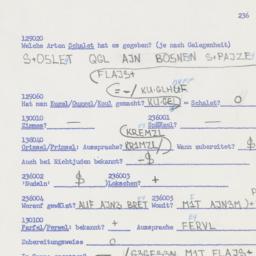 236
129020
Welche Arten Schalet hat es gegeben? (je nach Gelegenheit)
S+OSLET QGL AJN BOSNEN S+PAJZE
FLAJS+
= -/ KU.GLHUF
129060
Hat man Kugel/Guggel/Koul gemacht? KU.GEL = Schalet? O
130010 236001
Zimmes? —
KREMZL
130040
Grimsel/Primsel: Aussprache? Wann zubereitet? $
Auch bei Nichtjuden bekannt? -$
236002 236003
"Nudeln? $ Lokschen? +
236004 236005
Worauf gewälzt? AUF AJNS BRET Womit? MIT AJNSM)+
130100
Farfel/Ferwel: bekannt? + Aussprache? FERVL
Zubereitungsweise O
MIT FLAJS+